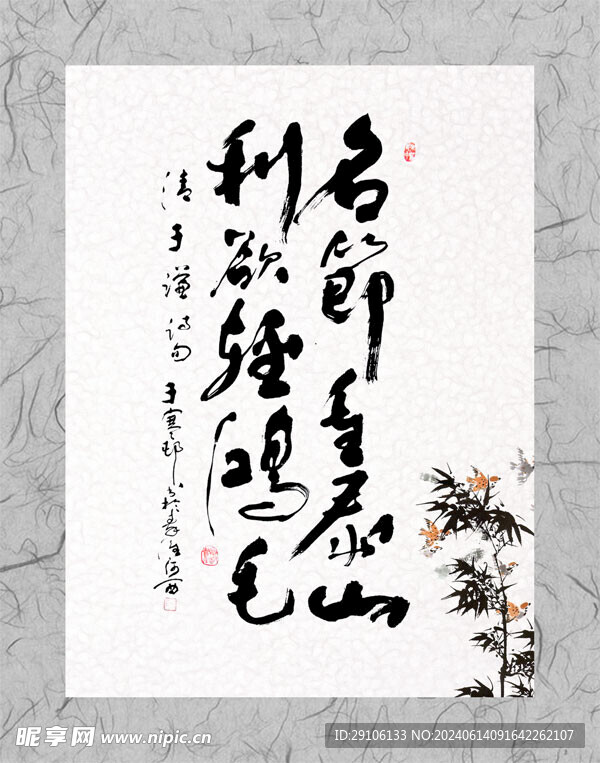 名節重泰山
利欲輕鴻毛
清于謙诗句
昵享网 www.nipic.cn
ID:29106133 NO:20240614091642262107